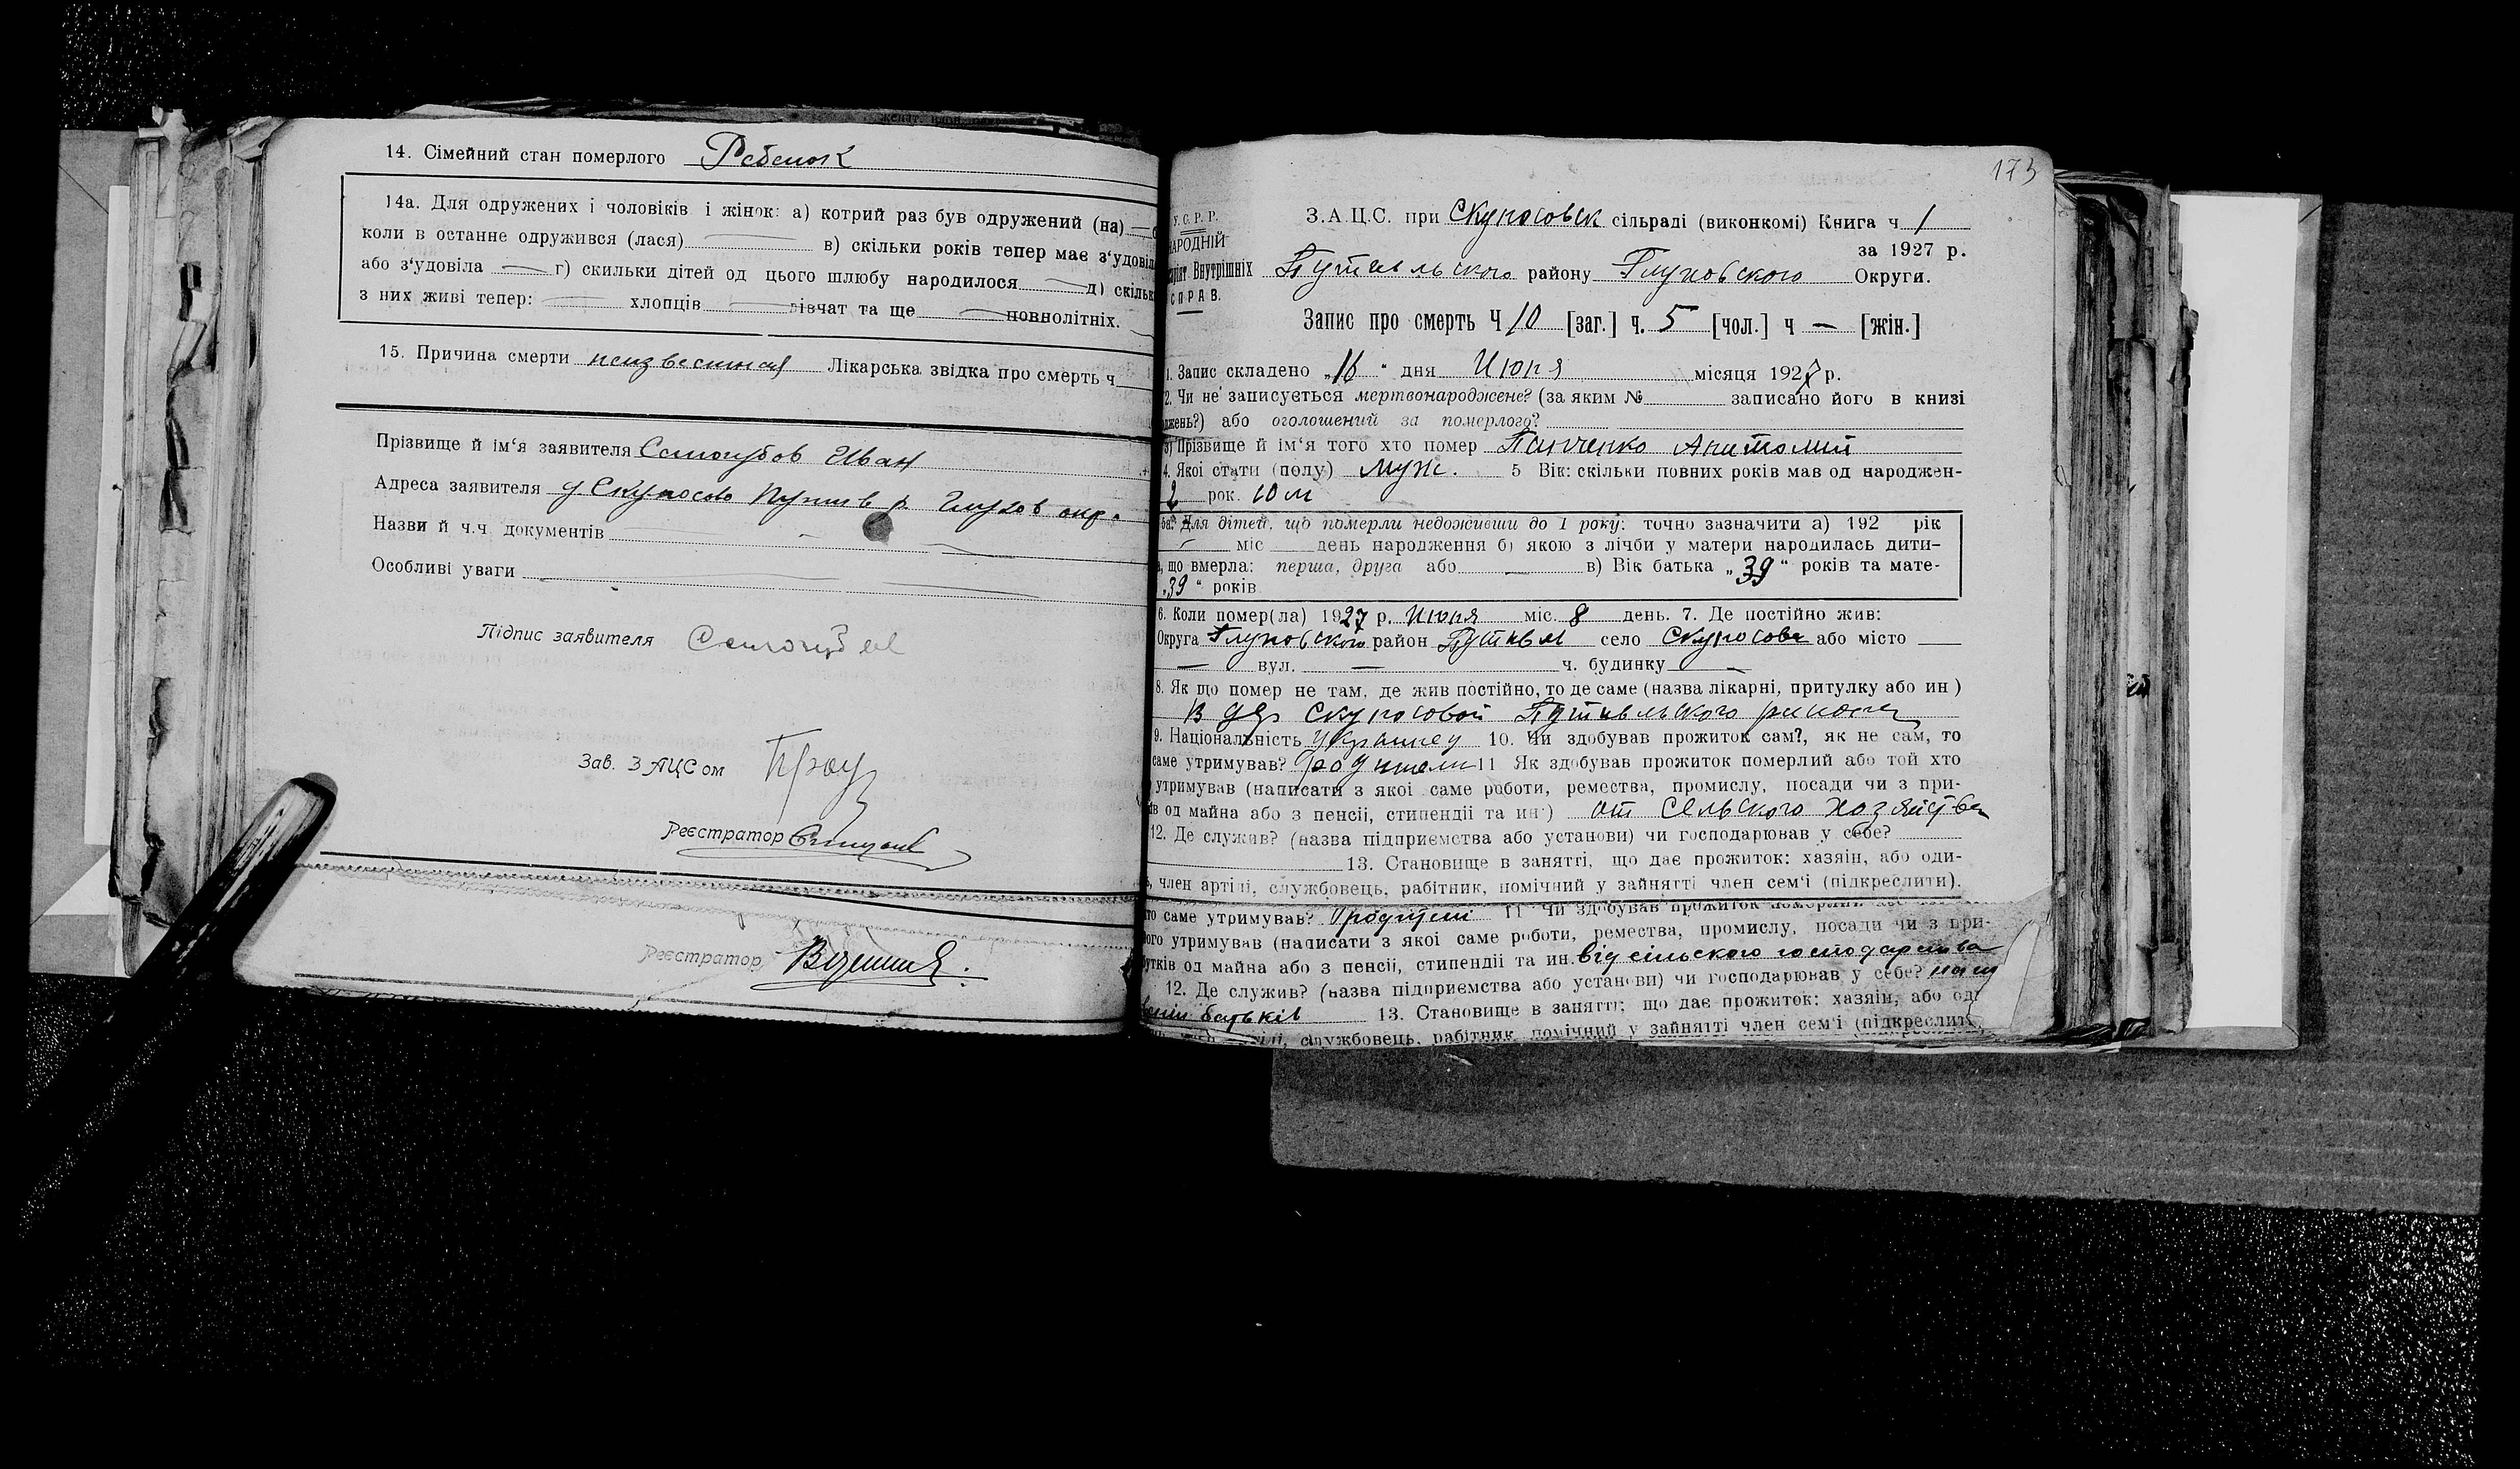 14. Сімейний стан померлого Ребенок
14а. Для одружених і чоловіків і жінок: а) котрий раз був одружений (на)
коли в останне одружився (лася) в) скільки років тепер має з'удовіл
або з'удовіла г) скильки дітей од цього шлюбу народилося д) скільк
з них живі тепер: хлопців дівчат та ще повнолітніх.
15. Причина смерти неизвестная Лікарська звідка про смерть ч
Прізвище й ім'я заявителя Самогубов Иван
Адреса заявителя д Скуносово Путив р. Глухов окр.
Назви й ч.ч. документів
Особливі уваги
Підпис заявителя
Зав. ЗАЦСом
Реєстратор
Реєстратор
173
У.С.Р.Р.
НАРОДНІЙ
Внутрішніх
СПРАВ.
З.А.Ц.С. при Скуносовск сільраді (виконкомі) Книга ч 1
за 1927 р.
Путивльского району Глуховского Округи.
Запис про смерть Ч 10 [заг.] ч. 5 [чол.] ч — [жін.]
1. Запис складено „16" дня Июня місяця 1927 р.
2. Чи не записується мертвонароджене? (за яким № записано його в книзі
джень?) або оголошений за померлого?
3) Прізвище й ім'я того хто помер Панченко Анатолий
4. Якої стати (полу) муж. 5 Вік: скільки повних років мав од народжен-
2 рок. 10 м
5а. Для дітей, що померли недоживши до 1 року: точно зазначити а) 192 рік
міс день народження б) якою з лічби у матери народилась дити-
, що вмерла: перша, друга або — в) Вік батька „39" років та мате-
„39" років
6. Коли помер(ла) 1927 р. Июня міс. 8 день. 7. Де постійно жив:
Округа Глуховского район Путивл село Скуносова або місто —
— вул. — ч. будинку —
8. Як що помер не там, де жив постійно, то де саме (назва лікарні, притулку або ин)
В дер Скуносовой Путивльского района
9. Національність украинец 10. Чи здобував прожиток сам?, як не сам, то
саме утримував? родители 11 Як здобував прожиток померлий або той хто
утримував (написати з якої саме роботи, ремества, промислу, посади чи з при-
ів од майна або з пенсії, стипендії та ин) от сельского хозяйства
12. Де служив? (назва підприємства або установи) чи господарював у себе?
13. Становище в занятті, що дає прожиток: хазяін, або оди-
, член артілі, службовець, рабітник, помічний у зайнятті член сем'і (підкреслити).
то саме утримував? родителі 11 Чи здобував прожиток
ого утримував (написати з якої саме роботи, ремества, промислу, посади чи з при-
бутків од майна або з пенсії, стипендії та ин. від сільского господарства
12. Де служив? (назва підприємства або установи) чи господарював у себе?
батьків 13. Становище в занятті; що дає прожиток: хазяін, або оди
службовець, рабітник, помічний у зайнятті член сем'і (підкреслит